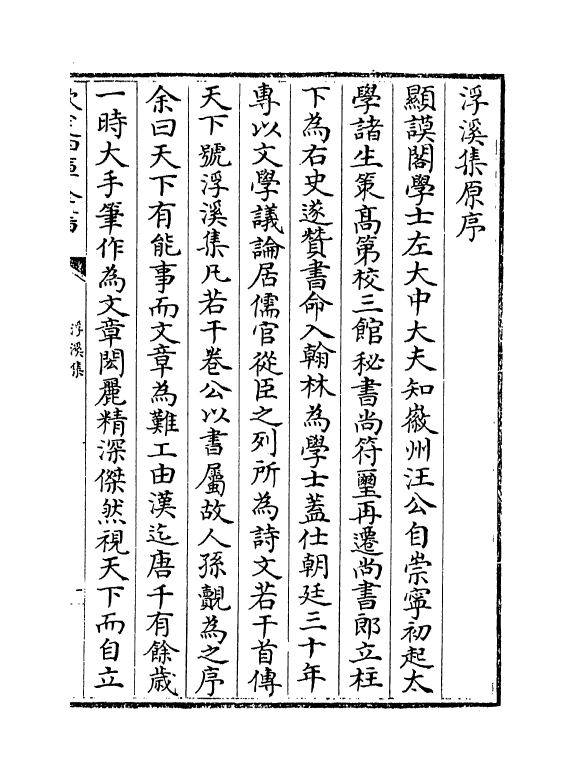 浮溪集原序
顯謨閣學士左大中大夫知徽州汪公自崇寧初起太
學諸生策髙第校三館秘書尚符璽再遷尚書郎立柱
下為右史遂贊書命入翰林為學士蓋仕朝廷三十年
專以文學議論居儒官從臣之列所為詩文若干首傳
天下號浮溪集凡若干卷公以書屬故人孫覿為之序
余曰天下有能事而文章為難工由漢迄唐千有餘歳
一時大手筆作為文章閎麗精深傑然視天下而自立
浮溪集